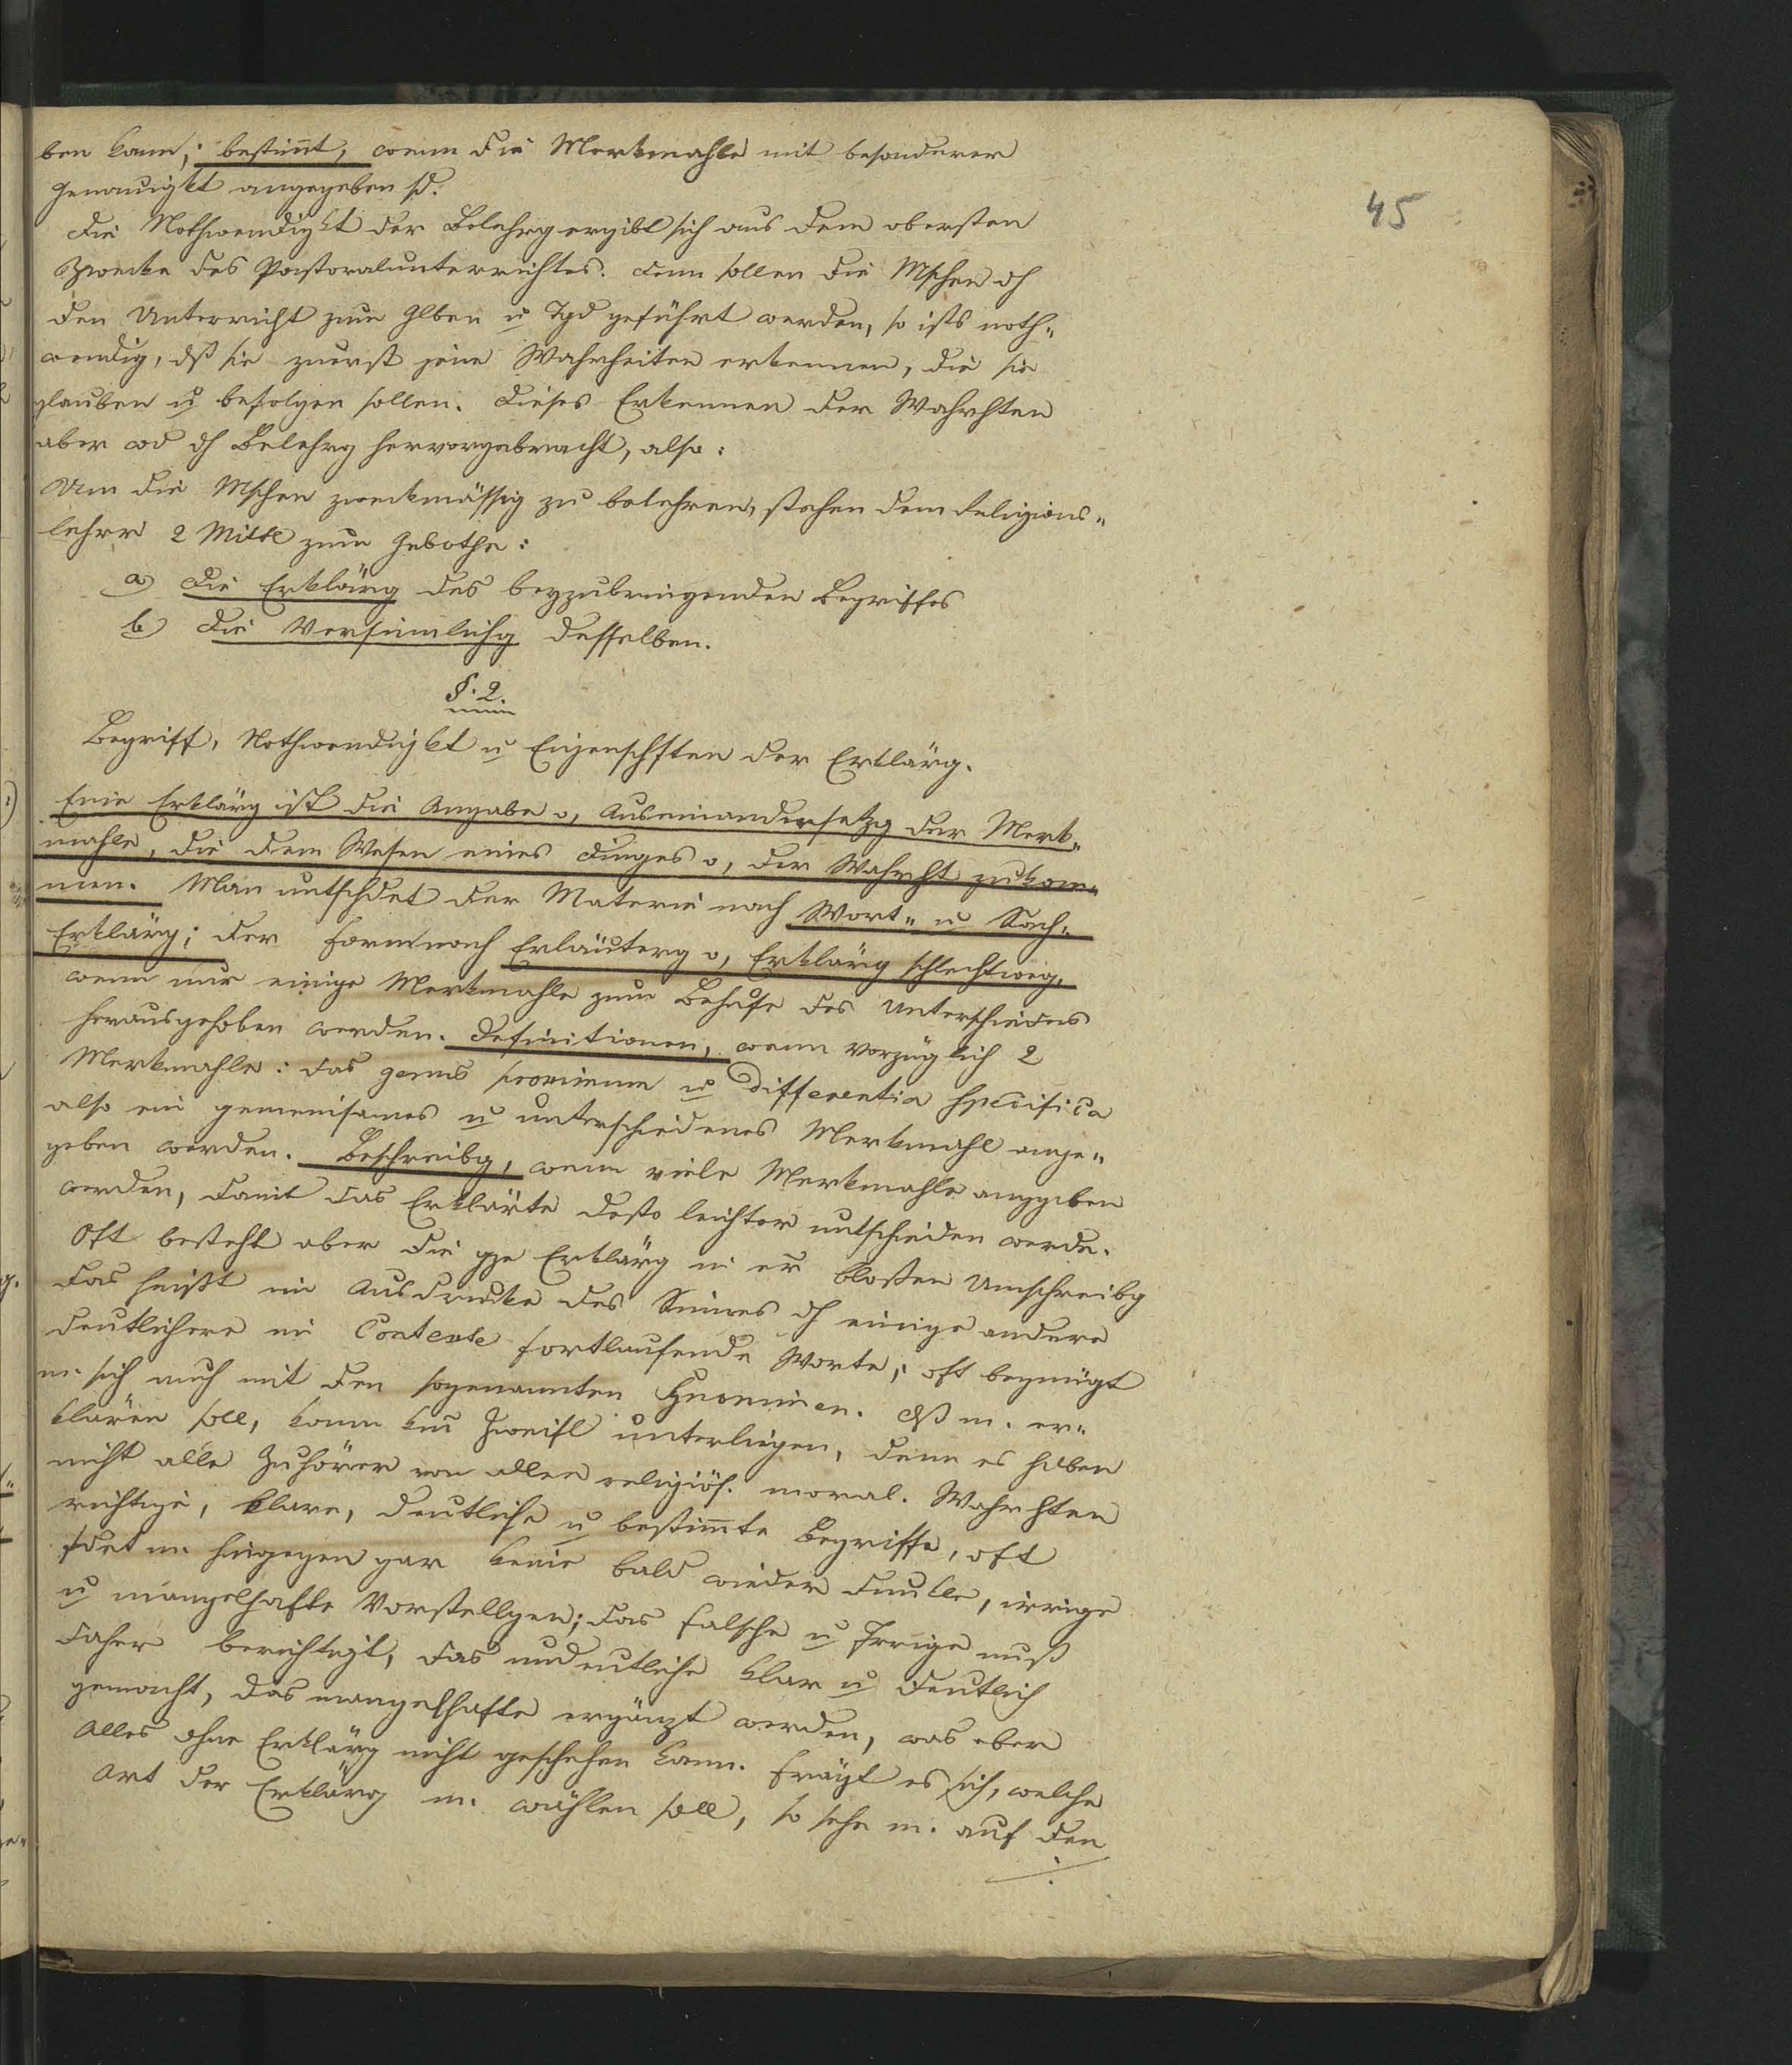 45
ben kann; bestimt, wenn die Merkmahle mit besonderer
Genauigkt angegeben sd.
Die Nothwendigkt der Belehrg ergibt sich aus dem obersten
Zwecke des Pastoralunterrichtes. Denn sollen die Mschen dh
den Unterricht zum Glben u Tgd geführt werden, so ists noth„
wendig, dß sie zuerst jene Wahrheiten erkennen, die sie
glauben u befolgen sollen. Dieses Erkennen der Wahrhten
aber wd dh Belehrg hervorgebracht, also:
Um die Mschen zweckmässig zu belehren, stehen dem Religions„
lehrer 2 Mittel zum Gebothe:
a) Die Erklärg des beyzubringenden Begriffes
b) Die Versinnlichg desselben.
§. 2.
Begriff, Nothwendigkt u Eigenschften der Erklärg.
Eine Erklärg ist die Angabe o, Auseinandersetzg der Merk„
mahle, die dem Wesen eines Dinges o, der Wahrht zukom„
men. Man untschdet der Materie nach Wort„ u Sach„
Erklärg; der Form nach Erläuterg o, Erklärg schlechtweg,
wenn nur einige Merkmahle zum Behufe des Unterschiedes
herausgehoben werden. Definitionen, wenn vorzüglich 2
Merkmahle: das genus proximum u differentia specifica
also ein gemeinsames u unterschiedenes Merkmahl ange„
geben werden. Beschreibg, wenn viele Merkmahle anggeben
werden, damit das Erklärte desto leichter untschieden werde.
Oft besteht aber die gze Erklärg in er bloßen Umschreibg
das heißt im Ausdrucke des Sinnes dh einige andere
deutlichere im Contexte fortlaufende Worte; oft begnügt
m. sich auch mit den sogenannten Synonimen. Dß m. er„
klären soll, kann kein Zweifl unterliegen, denn es haben
nicht alle Zuhörer von allen religiös. moral. Wahrhten
richtige, klare, deutliche u bestimte Begriffe, oft
fdet m. hingegen gar keine bald wieder dunkle, irrige
u mangelhafte Vorstellgen; das Falsche u Irrige muß
daher berichtigt, das undeutliche klar u deutlich
gemacht, das mangelhafte ergänzt werden, was aber
Alles ohne Erklärg nicht geschehen kann. Frägt es sich, welche
Art der Erklärg m. wählen soll, so sehe m. auf den